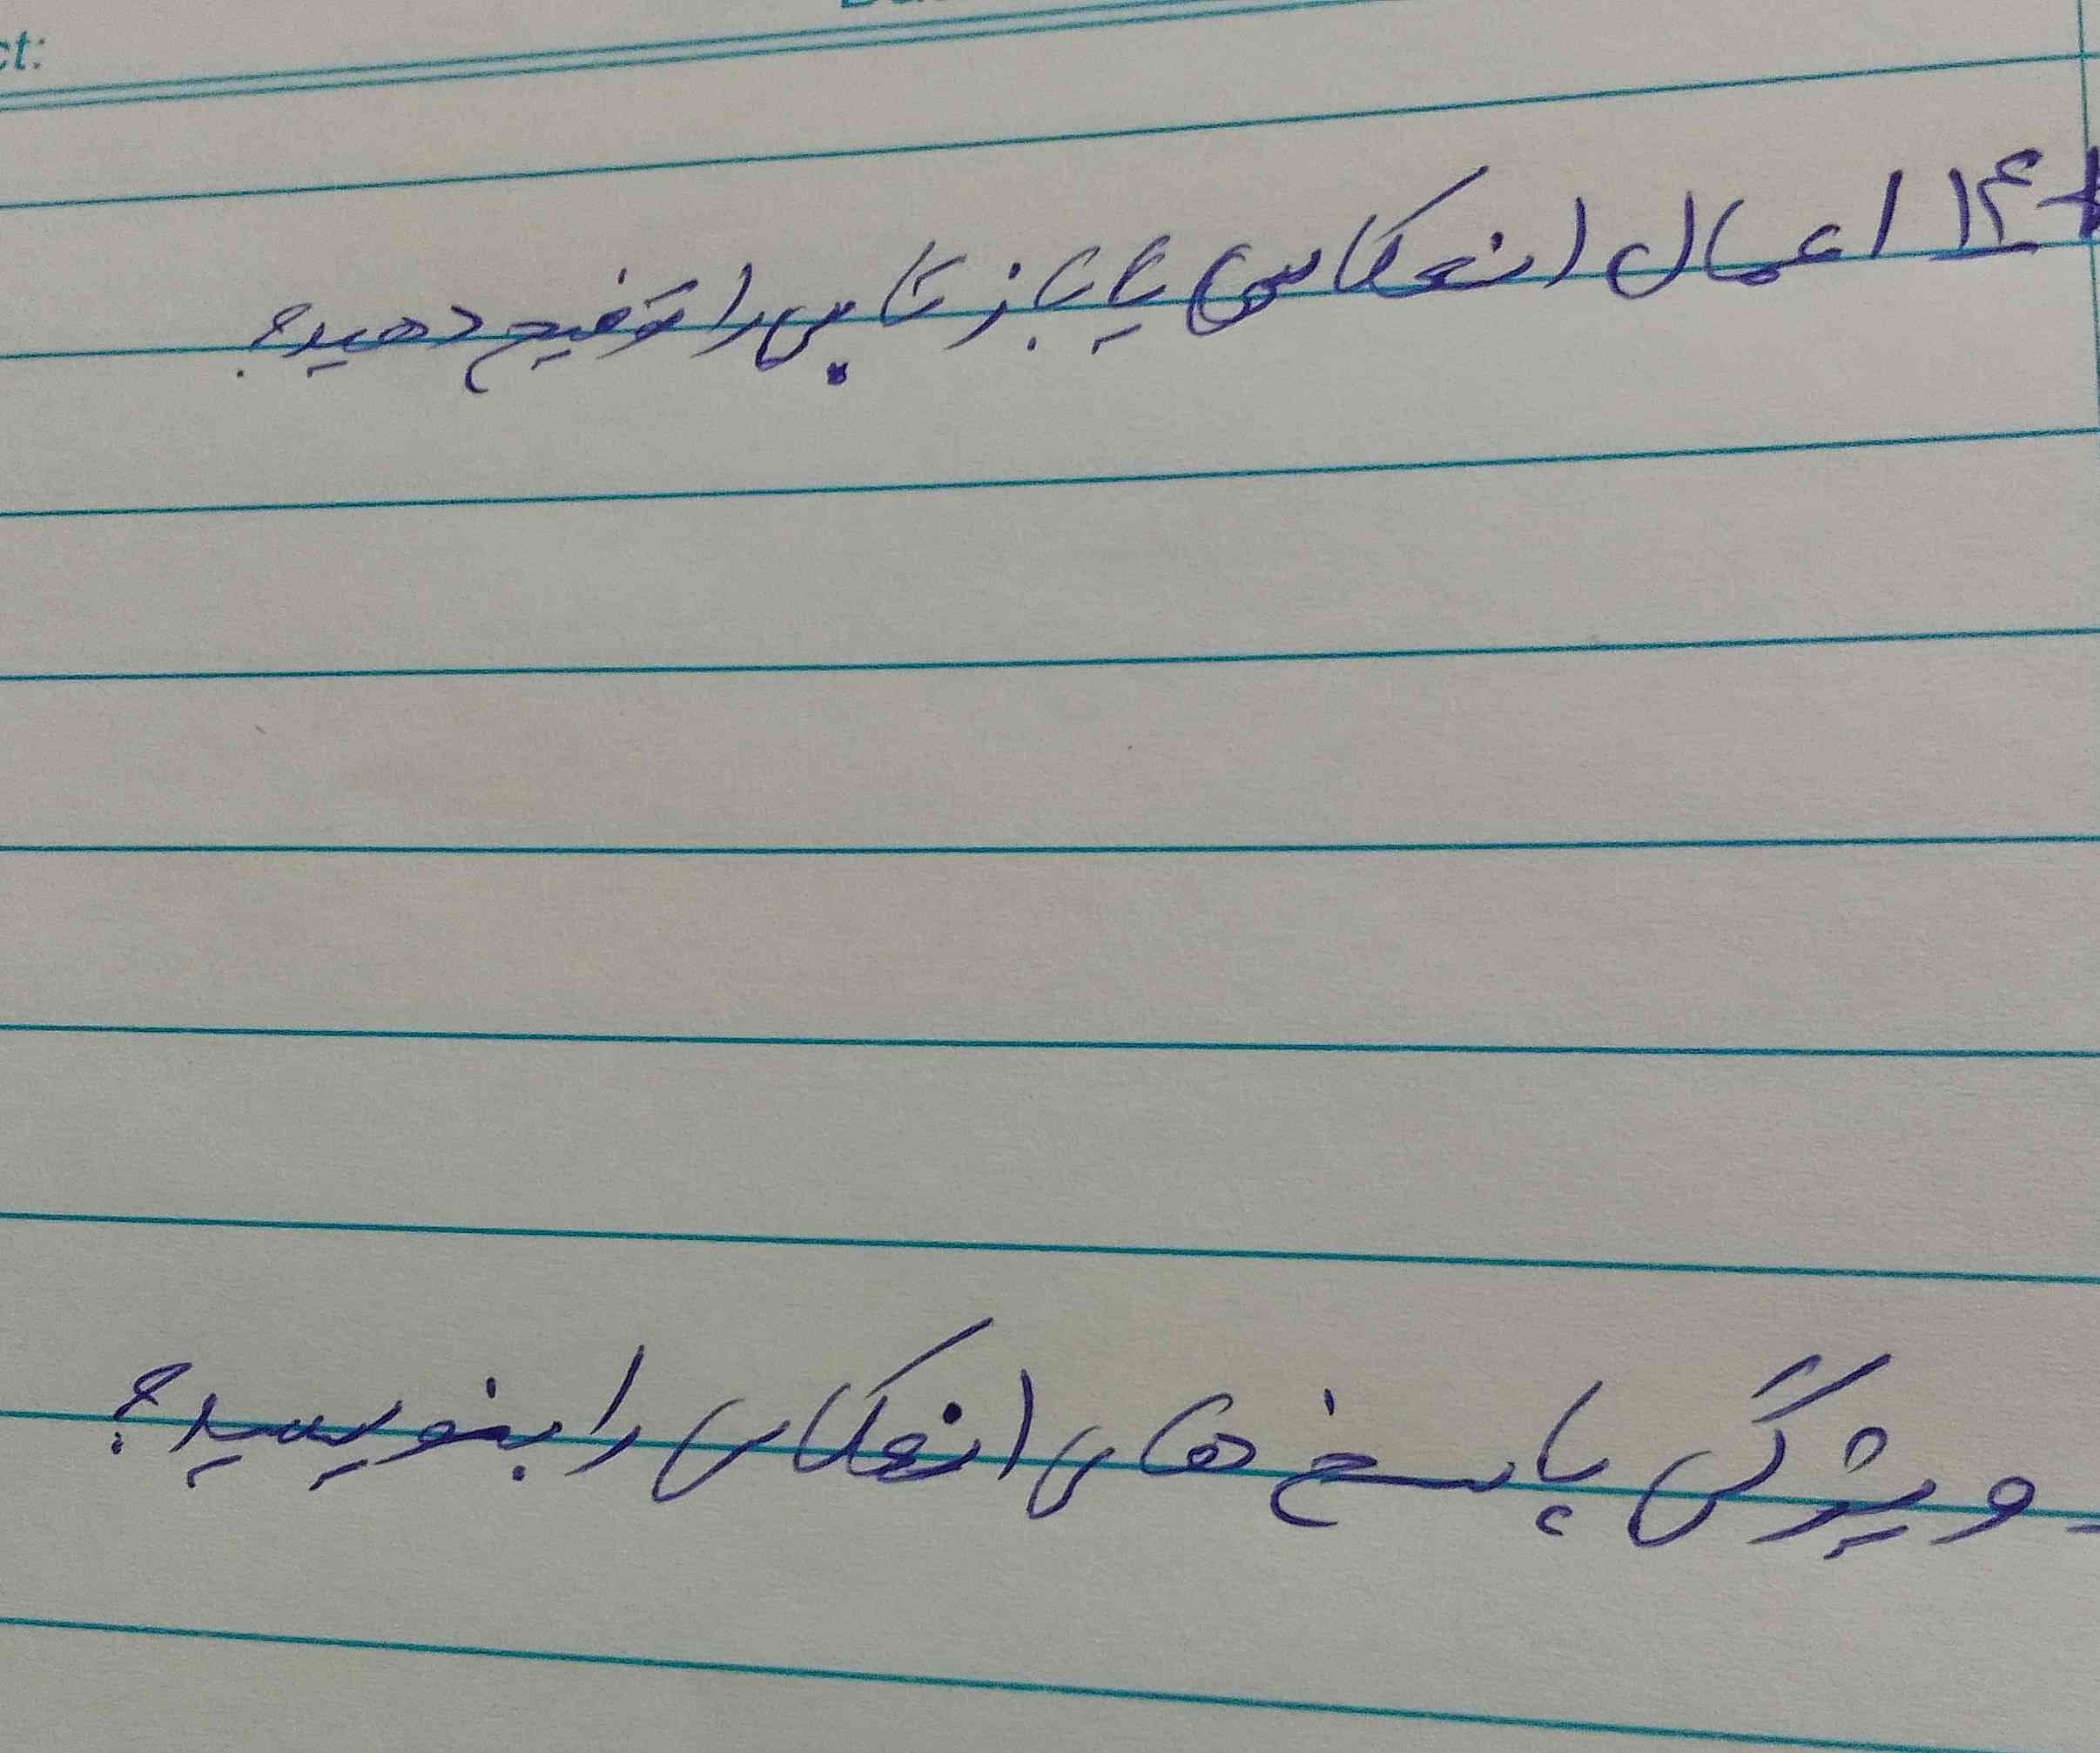 ct:
۱۴ اعمال انعکاسی یا بازتابی را توضیح دهید؟
ویژگی پاسخ های انعکاس را بنویسید؟